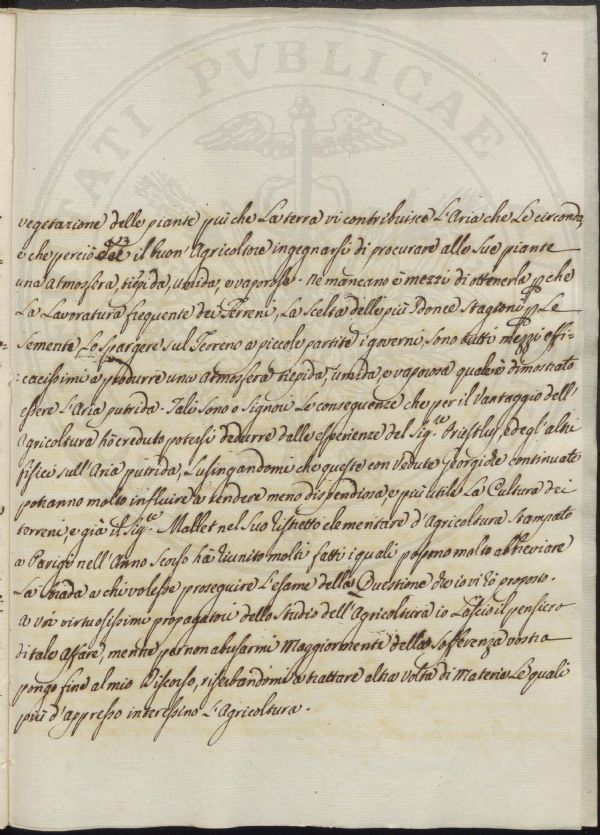 7
TATI PVBLICAE
vegetazione delle piante più che La terra vi contribuisce L'Aria che Le circonda,
e che perciò dee il buon' Agricoltore ingegnarsi di procurare alle Sue piante
una atmosfera tiepida, umida, e vaporosa. Nè mancano i mezzi di ottenerla che
La Lavoratura frequente dei Terreni, La Scelta delle più Idonee Stagioni Le
Semente, Lo Spargere sul Terreno a piccole partite i governi, Sono tutti mezzi effi-
:cacissimi a produrre una atmosfera tiepida, umida, e vaporosa quale è dimostrato
essere L'Aria putrida. Tali sono o Signori Le conseguenze che per il Vantaggio dell'
Agricoltura hò creduto potersi dedurre dalle esperienze del Sig.re Priestley, e degl'altri
fisici sull'Aria putrida, Lusingandomi che queste con Vedute Georgiche continuate
potranno molto influire a rendere meno dispendiosa, e più utile La Cultura dei
terreni, e già il Sig.re Mallet nel Suo ristretto elementare d'Agricoltura Stampato
a Parigi nell'Anno Scorso hà riunito molti fatti i quali possono molto abbreviare
La Strada a chi volesse proseguire L'esame della Questione che io vi hò proposto.
A voi virtuosissimi propagatori dello Studio dell'Agricoltura io Lascio il pensiero
di tale Affare, mentre per non abusarmi Maggiormente della Sofferenza vostra
pongo fine al mio Discorso, riserbandomi a trattare altra volta di Materie Le quali
più d'appresso interessino L'Agricoltura.